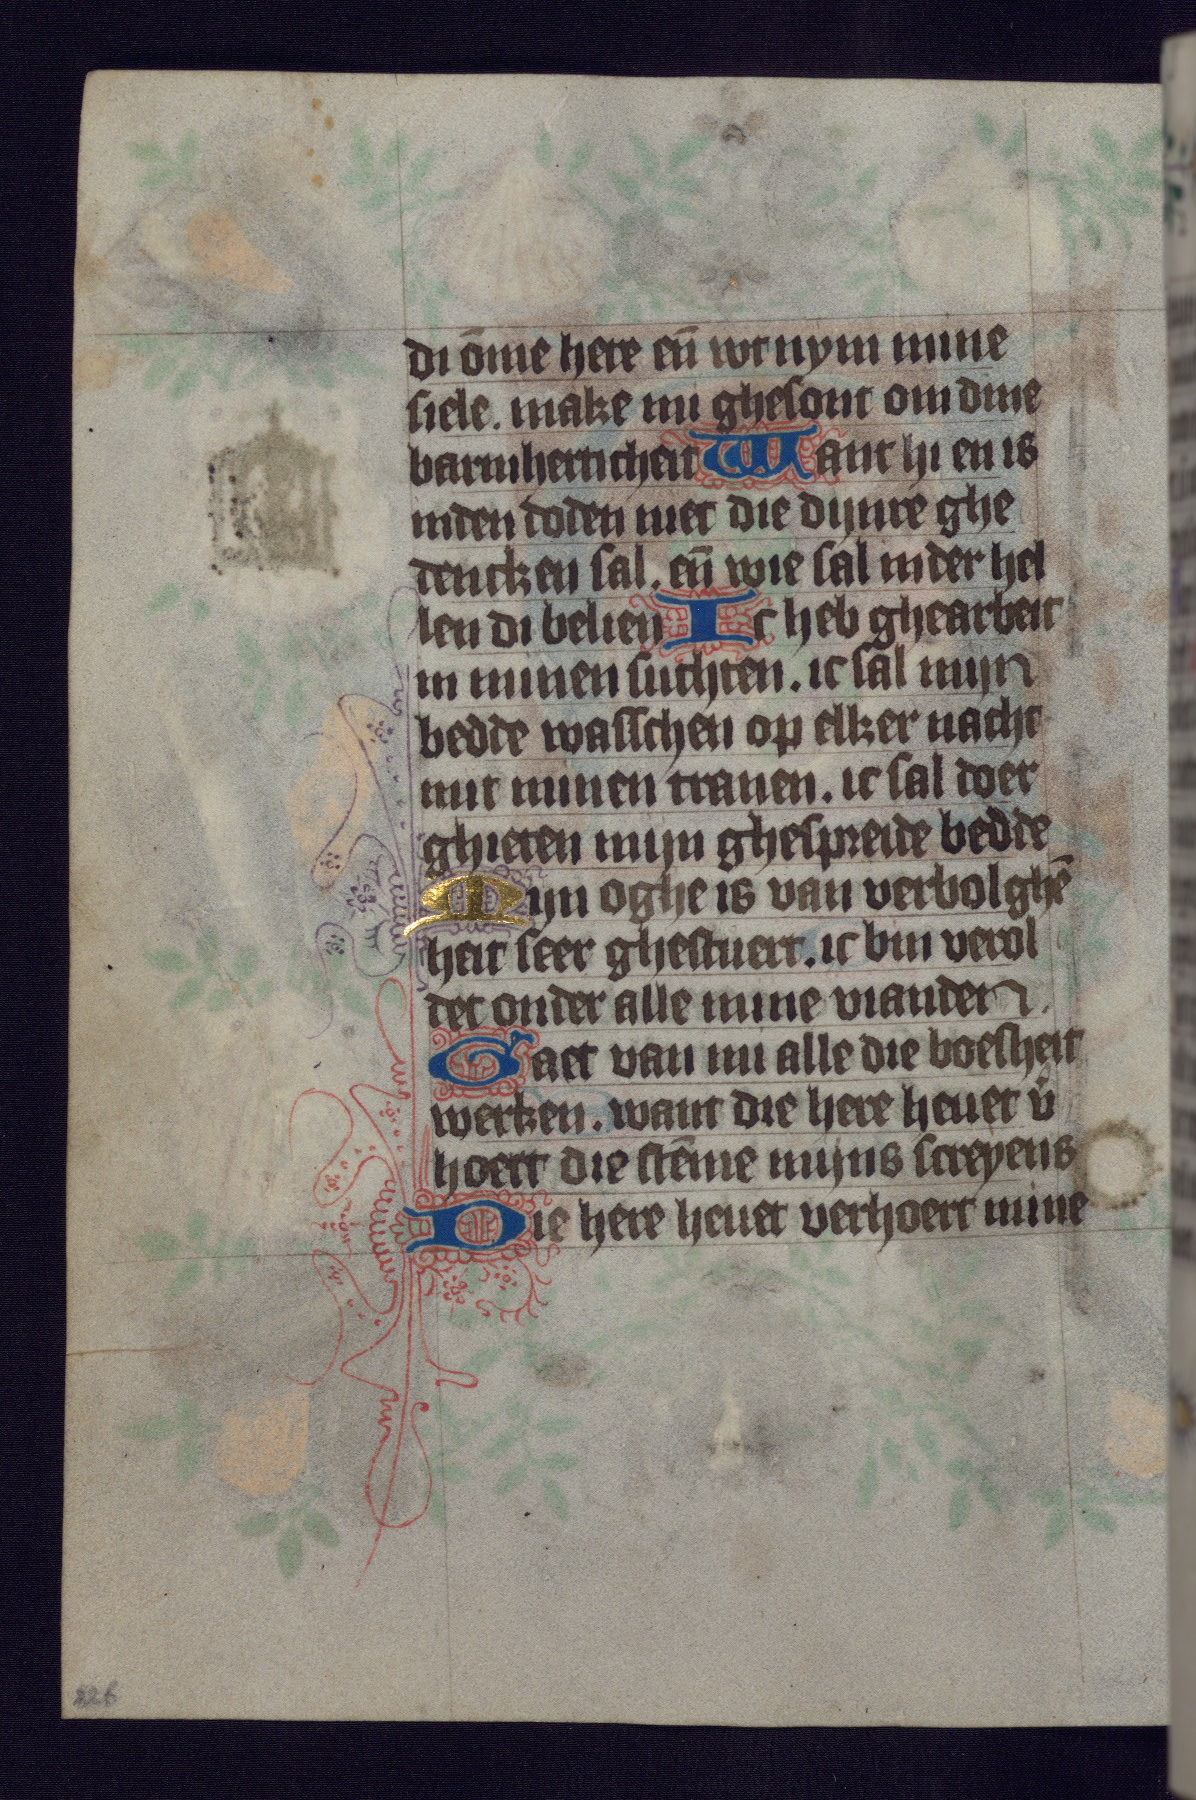 di ōme here eñ wt nym mine
siele. make mi ghesont om dine
barmherticheit Want hi en is
inden doden niet die dijnre ghe
dencken sal. eñ wie sal in der hel
len di belien Ic heb ghearbeit
in minen suchten. ic sal mijn
bedde wasschen op elker nacht
mit minen tranen. ic sal doer
ghieten mijn ghespreide bedde
Mijn oghe is van verbolghē
heit seer ghestuert. ic bin verol
det onder alle mine vianden.
Gaet van mi alle die boesheit
werken. want die here heuet v̊
hoert die stēme mijns screyens
Die here heuet verhoert mine
226